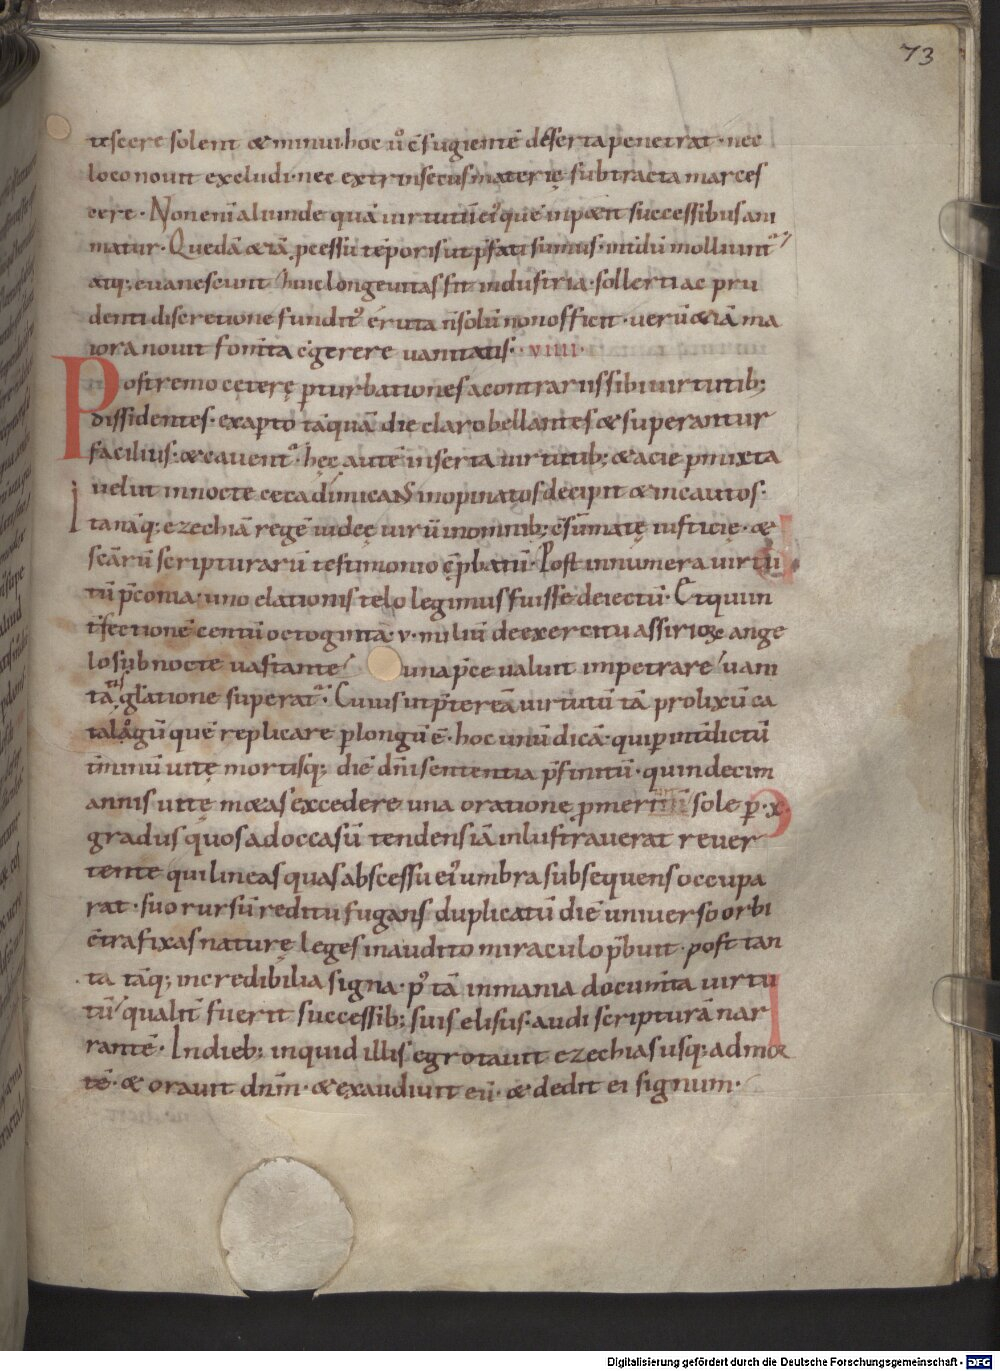 73
tescere solent & minui hoc u᷒o ē fugientē deserta penetrat · nec
loco nouit excludi · nec extrinsecus materię subtracta marces
cere · Non enī aliunde quā uirtutū ei᷒ quē inpetit successibus ani
matur · Quedā & iā pcessu tēporis ut p̄fati sumus · interdū molliunt᷒
atq; euanescunt huic longeuitas nisi industria · sollerti ac pru
denti discretione fundit᷒ fuerit n̄ solū non officit · uerū & iā ma
iora nouit fomita cōgerere uanitatis · viiii ·
Postremo ceterę pturbationes a contrariis sibi uirtutib;
dissidentes · ex apto tāquā die claro bellantes & superantur
facilius · & cauent᷒ · hęc autē inserta uirtutib; & acie pmixta
uelut in nocte ceca dimicans inopinatos decipit & incautos ·
Itanāq; ezechiā regē iudeę uirū in omnib; cōsūmatę iusticię · &
scārū scripturarū testimonio cōpbatū · Post innumera uirtu
tū p̄conia · uno elationis telo legimus fuisse deiectū · Et qui in
t̄fectionē centū octoginta · v · miliū de exercitu assirioꝝ ange
lo sub nocte uastante una p̄ce ualuit impetrare uani
tatis glatione superat᷒ · Cuius ut p̄teream uirtutū tā prolixū ca
talogū quē replicare plongū ē · hoc unū dicā · qui p̄ intdictū
tminū uitę mortisq; diē dn̄i sententia p̄finitū · quindecim
annis uitę metas excedere una oratione pmerit sole p · x ·
gradus quos ad occasū tendens iā inlustrauerat reuer
tente qui lineas quas abscessu ei᷒ umbra subsequens occupa
rat · suo rursū reditu fugans duplicatū diē uniuerso orbi
cōtra fixas naturę leges inaudito miraculo p̄buit · post tan
ta tāq; incredibilia signa · p᷒ tā inmania documta uirtu
tū qualit fuerit successib; suis elisus · audi scripturā nar
rantē · In dieb; inquid illis egrotauit ezechias usq; ad mor
tē · & orauit dn̄m · & exaudiuit eū · & dedit ei signum ·
Digitalisierung gefördert durch die Deutsche Forschungsgemeinschaft · DFG